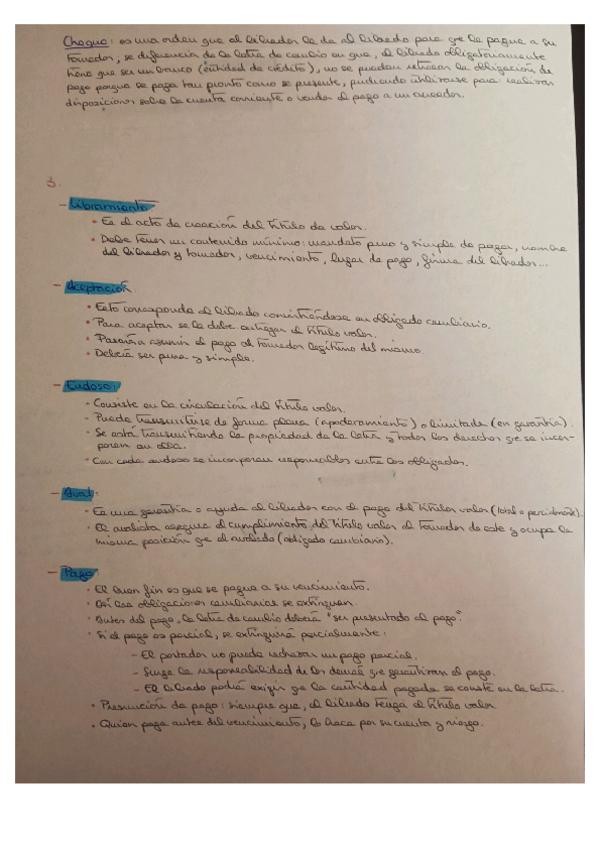 Cheque: es una orden que el librador le da al librado para que le pague a su
tomador, se diferencia de la letra de cambio en que, el librado obligatoriamente
tiene que ser un banco (entidad de crédito), no se pueden retrasar la obligación de
pago porque se paga tan pronto como se presente, pudiendo utilizarse para: realizar
disposiciones sobre la cuenta corriente o vender el pago a un acreedor.
3.
- Libramiento
• Es el acto de creación del título de valor.
• Debe tener un contenido mínimo: mandato puro y simple de pagar, nombre
del librador y tomador, vencimiento, lugar de pago, firma del librador...
- Aceptación
• Esto corresponde al librado convirtiéndose en obligado cambiario.
• Para aceptar se le debe entregar el título valor.
• Pasaría a asumir el pago al tomador legítimo del mismo.
• Deberá ser pura y simple.
- Endoso:
• Consiste en la circulación del título valor.
• Puede transmitirse de forma plena (apoderamiento) o limitada (en garantía).
• Se está transmitiendo la propiedad de la letra y todos los derechos que se incor-
poran en ella.
• Con cada endoso se incorporan responsables entre los obligados.
- Aval:
• Es una garantía o ayuda al librador con el pago del título valor (total o parcialmente).
• El avalista asegura el cumplimiento del título valor al tomador de este y ocupa la
misma posición que el avalado (obligado cambiario).
- Pago:
• El buen fin es que se pague a su vencimiento.
• Así las obligaciones cambiarias se extinguen.
• Antes del pago, la letra de cambio deberá "ser presentado al pago".
• Si el pago es parcial, se extinguirá parcialmente:
- El portador no puede rechazar un pago parcial.
- Surge la responsabilidad de los demás que garantizan el pago.
- El librado podrá exigir que la cantidad pagada se conste en la letra.
• Presunción de pago: siempre que, el librado tenga el título valor
• Quien paga antes del vencimiento, lo hace por su cuenta y riesgo.